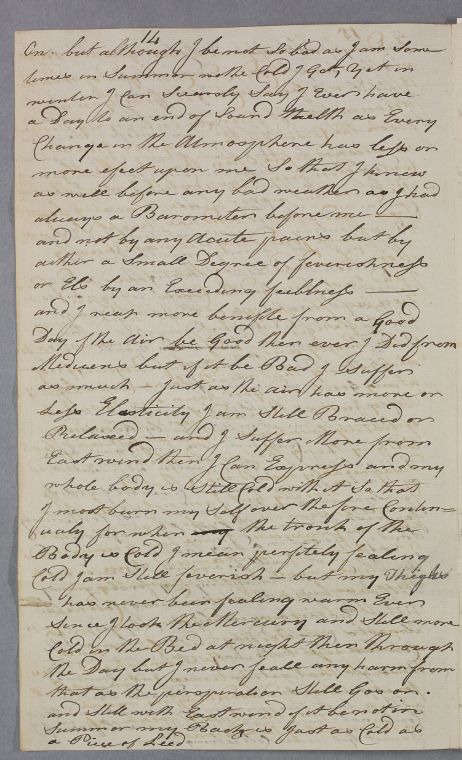 14
on. but although I be not So bad as I am Some
times in Summer with Cold I Got, Yet in
winter I Can Scarsly Say I Ever have
a Day to an end of Sound Health as Every
Change in the Atmosphere has less or
more efect upon me So that I know
as well before any bad weather as I had
always a Barometer before me —
and not by any Acute pains but by
aither a Small Degree of feverishness
or Els by an Exceeding feeblness —
and I reap more benifite from a Good
Day if the Air be Good then ever I Did from
Medicens but if it be Bad I Suffer
as much — Just as the air has more or
Less Elasticity I am Still Braced or
Relaxed — and I Suffer More from
East wind then I Can Express and my
whole body is Still Cold with it So that
I most burn my Self over the fire Contin=
ualy for when the trunk of the
Body is Cold I mean perfitely fealing
Cold I am Still feverish — but my Thighs
has never been fealing warm Ever
Since I took the Mercury and Still more
Cold in the Bed at night then through
the Day but I never feall any harm from
that as the perspiration Still Gos on.
and Still with East wind if it be not in
Summer my Back is Just as Cold as
a Piece of Leed.